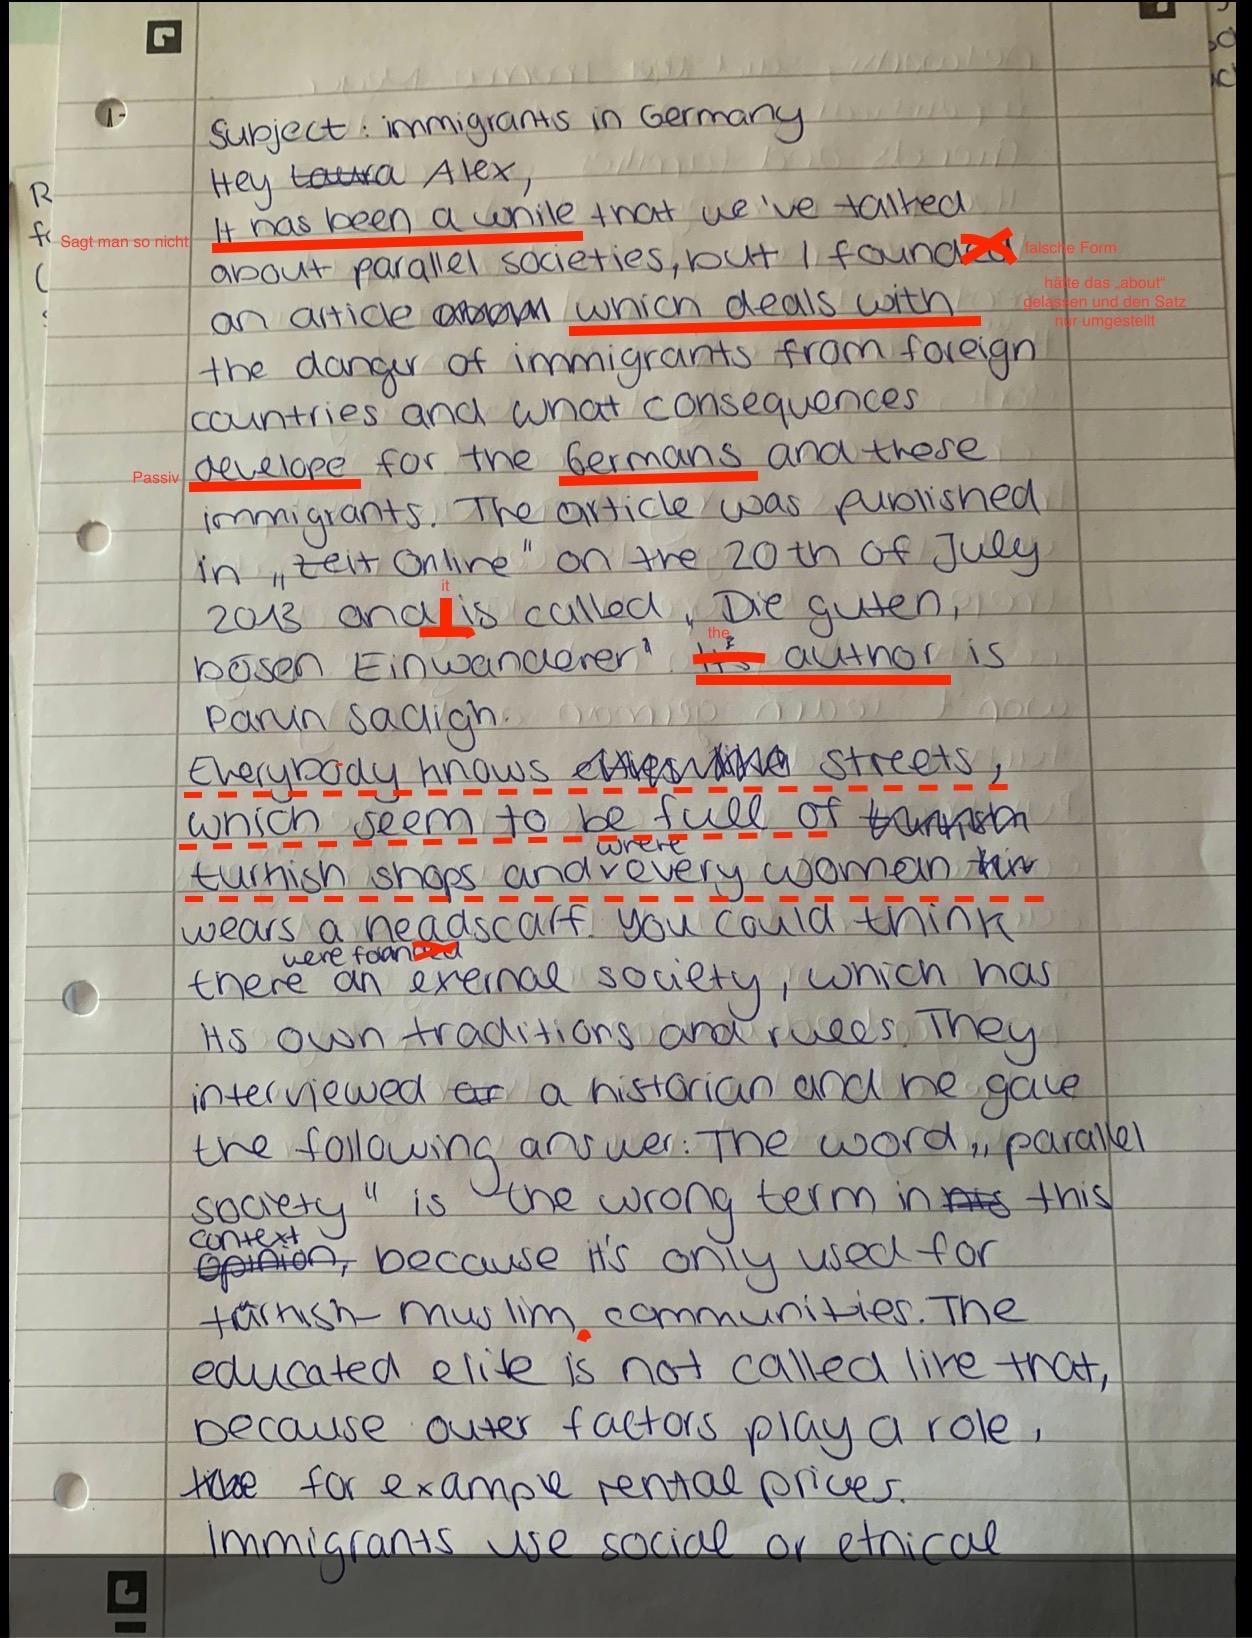 Subject: immigrants in Germany
Hey Laura Alex,
It has been a while that we've talked
Sagt man so nicht
about parallel societies, but I founded
falsche Form
an article which deals with
hätte das „about“
gelassen und den Satz
nur umgestellt
the danger of immigrants from foreign
countries and what consequences
develope for the Germans and these
Passiv
immigrants. The article was published
in „Zeit Online" on the 20th of July
it
2013 and is called „Die guten,
the
bösen Einwanderer" Its author is
Parvin Sadigh.
Everybody knows streets,
which seem to be full of turkish
where
turkish shops and every woman
wears a headscarf. You could think
were founded
there an exernal society, which has
its own traditions and rules. They
interviewed a historian and he gave
the following answer: The word „parallel
society" is the wrong term in his this
context
opinion, because it's only used for
türkish-muslim communities. The
educated elite is not called like that,
because outer factors play a role,
like for example rental prices.
Immigrants use social or ethical